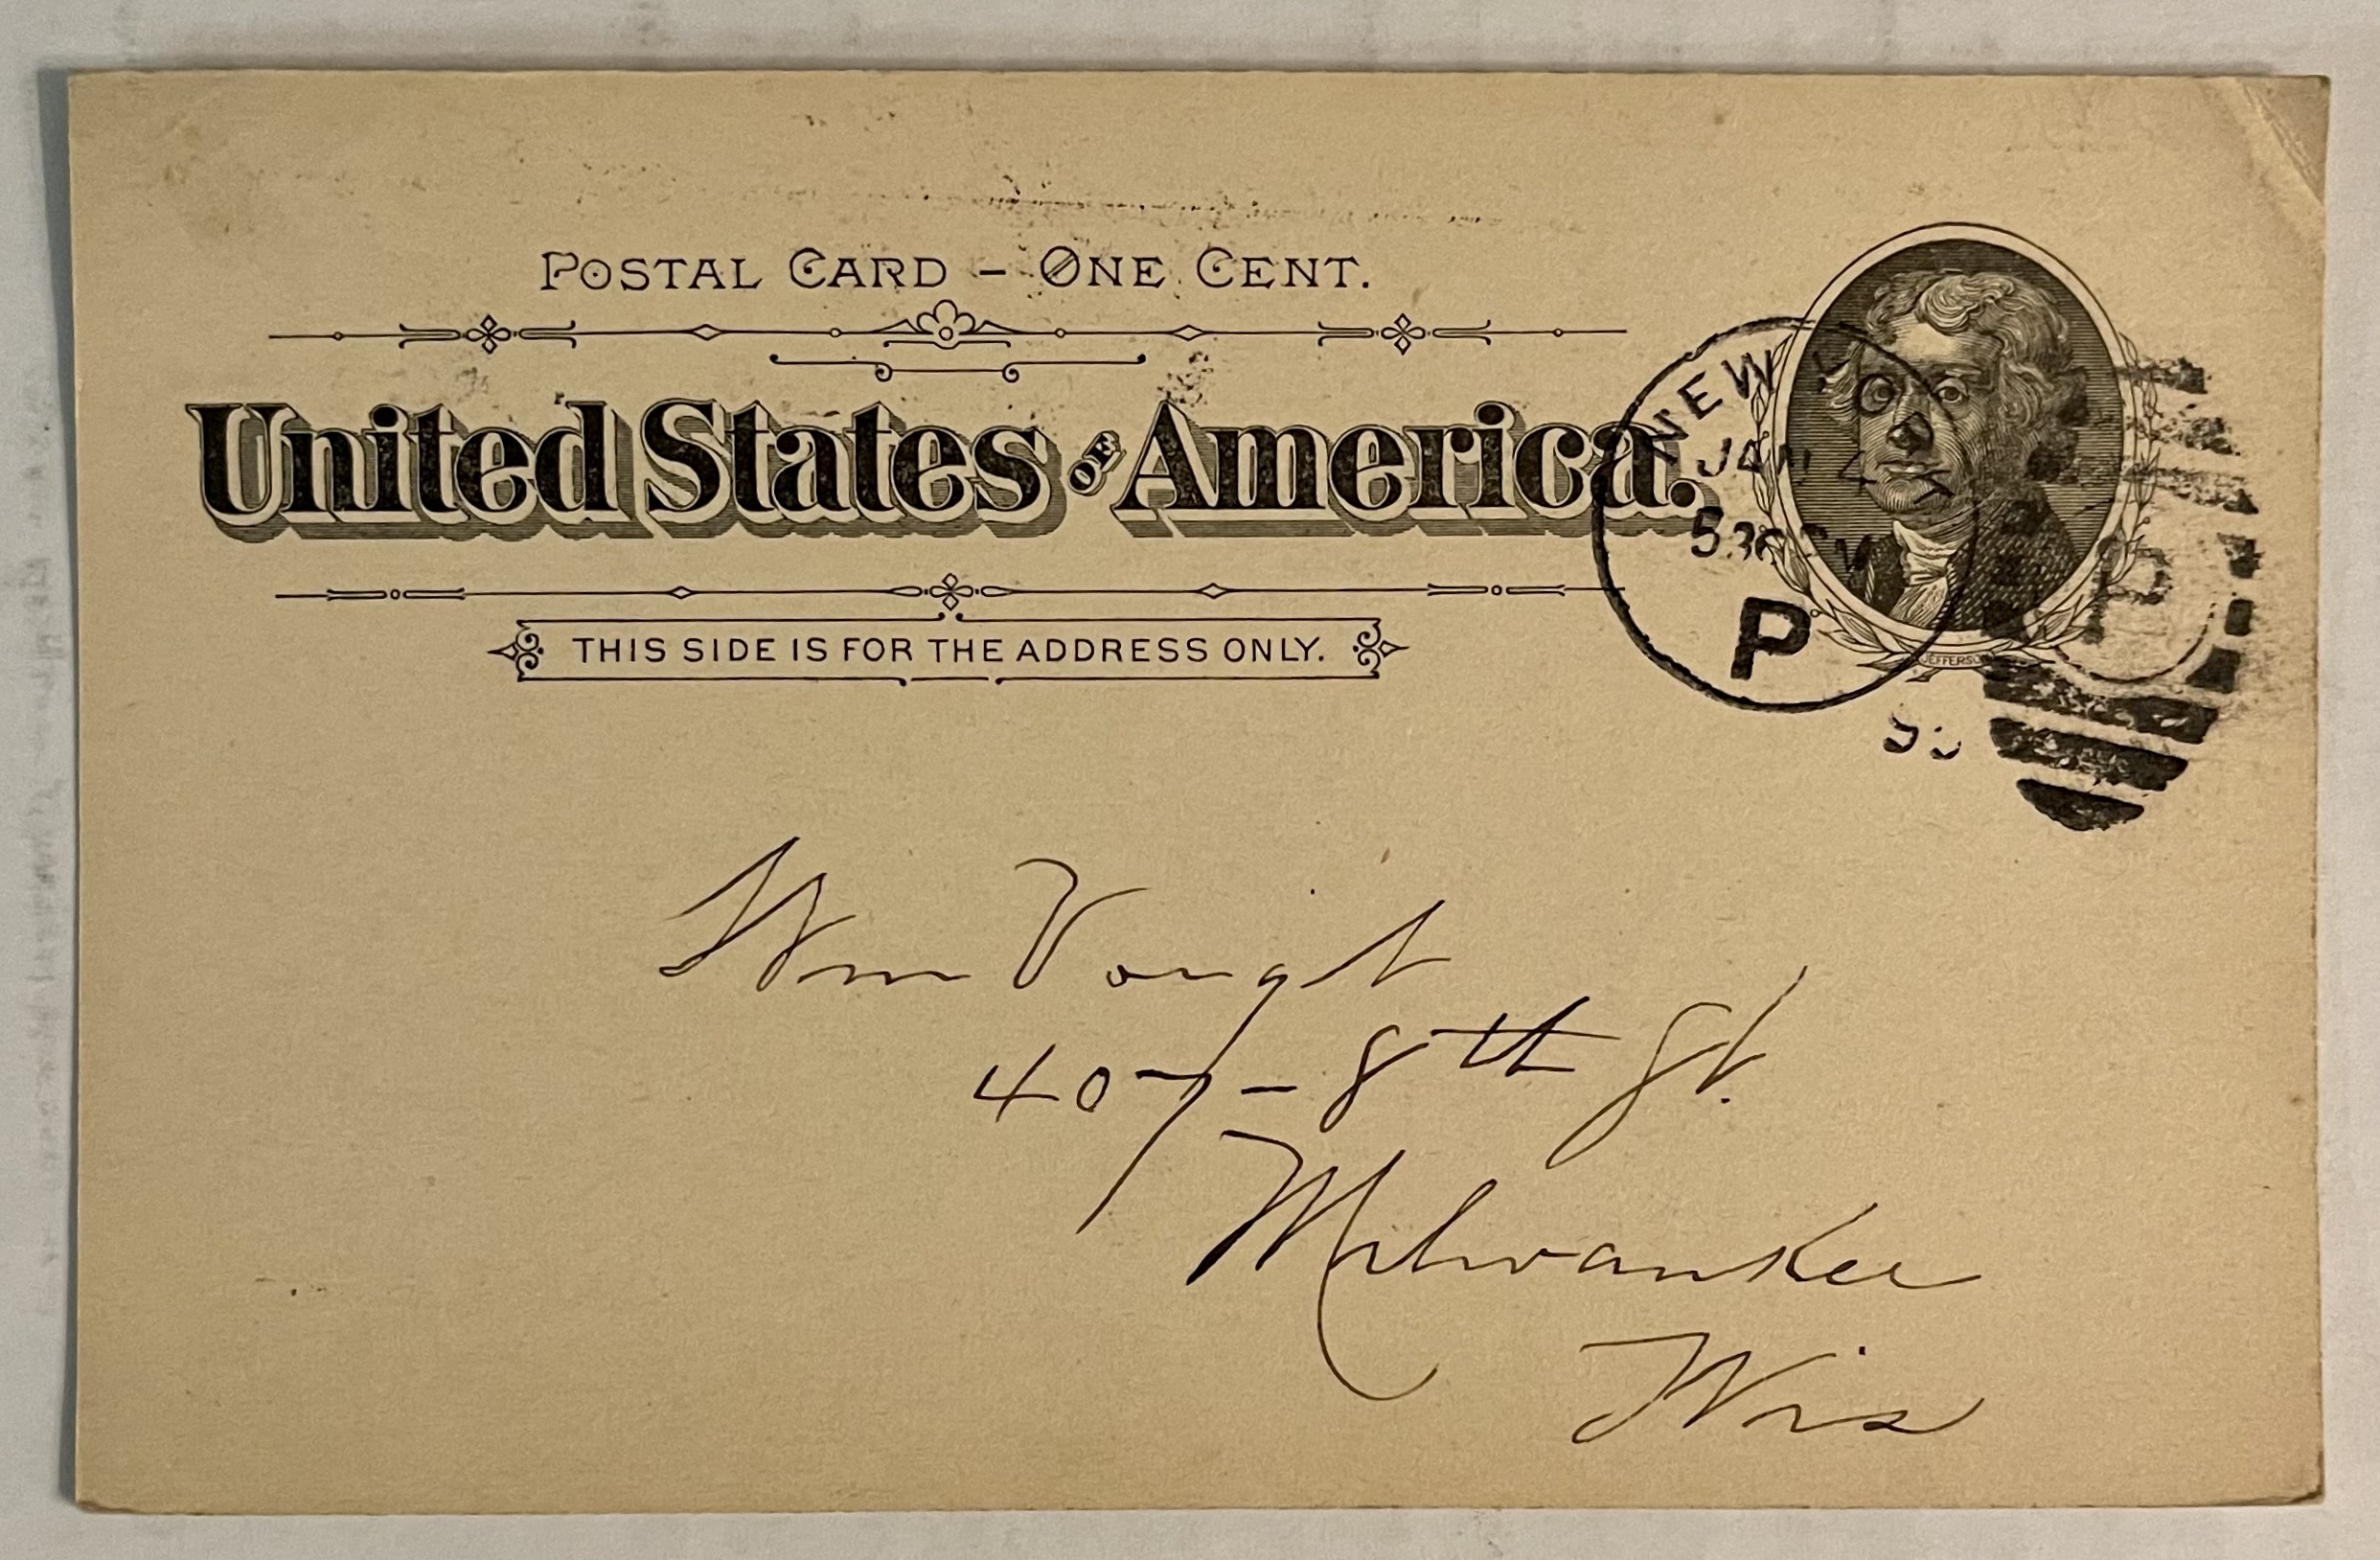 POSTAL CARD – ONE CENT.
United States OF America.
THIS SIDE IS FOR THE ADDRESS ONLY.
NEW
JAN
P
JEFFERSON
P
Wm Voigt
407 – 8th St.
Milwaukee
Wis